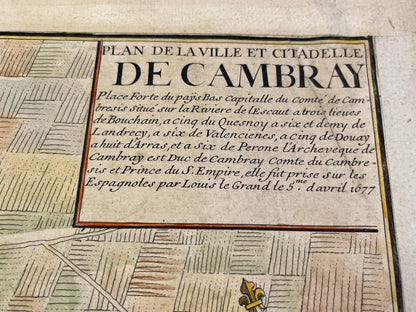 PLAN DE LA VILLE ET CITADELLE
DE CAMBRAY
Place Forte du païs Bas Capitalle du Comté de Cam-
bresis Situé sur la Riviere de l'Escaut a trois lieues
de Bouchain, a cinq du Quesnoy a six et demy de
Landrecy, a six de Valencienes, a cinq de Douay
a huit d'Arras, et a six de Perone l'Archevêque de
Cambray est Duc de Cambray Comte du Cambre-
sis et Prince du S. Empire, elle fut prise sur les
Espagnoles par Louis le Grand le 5.me d'avril 1677